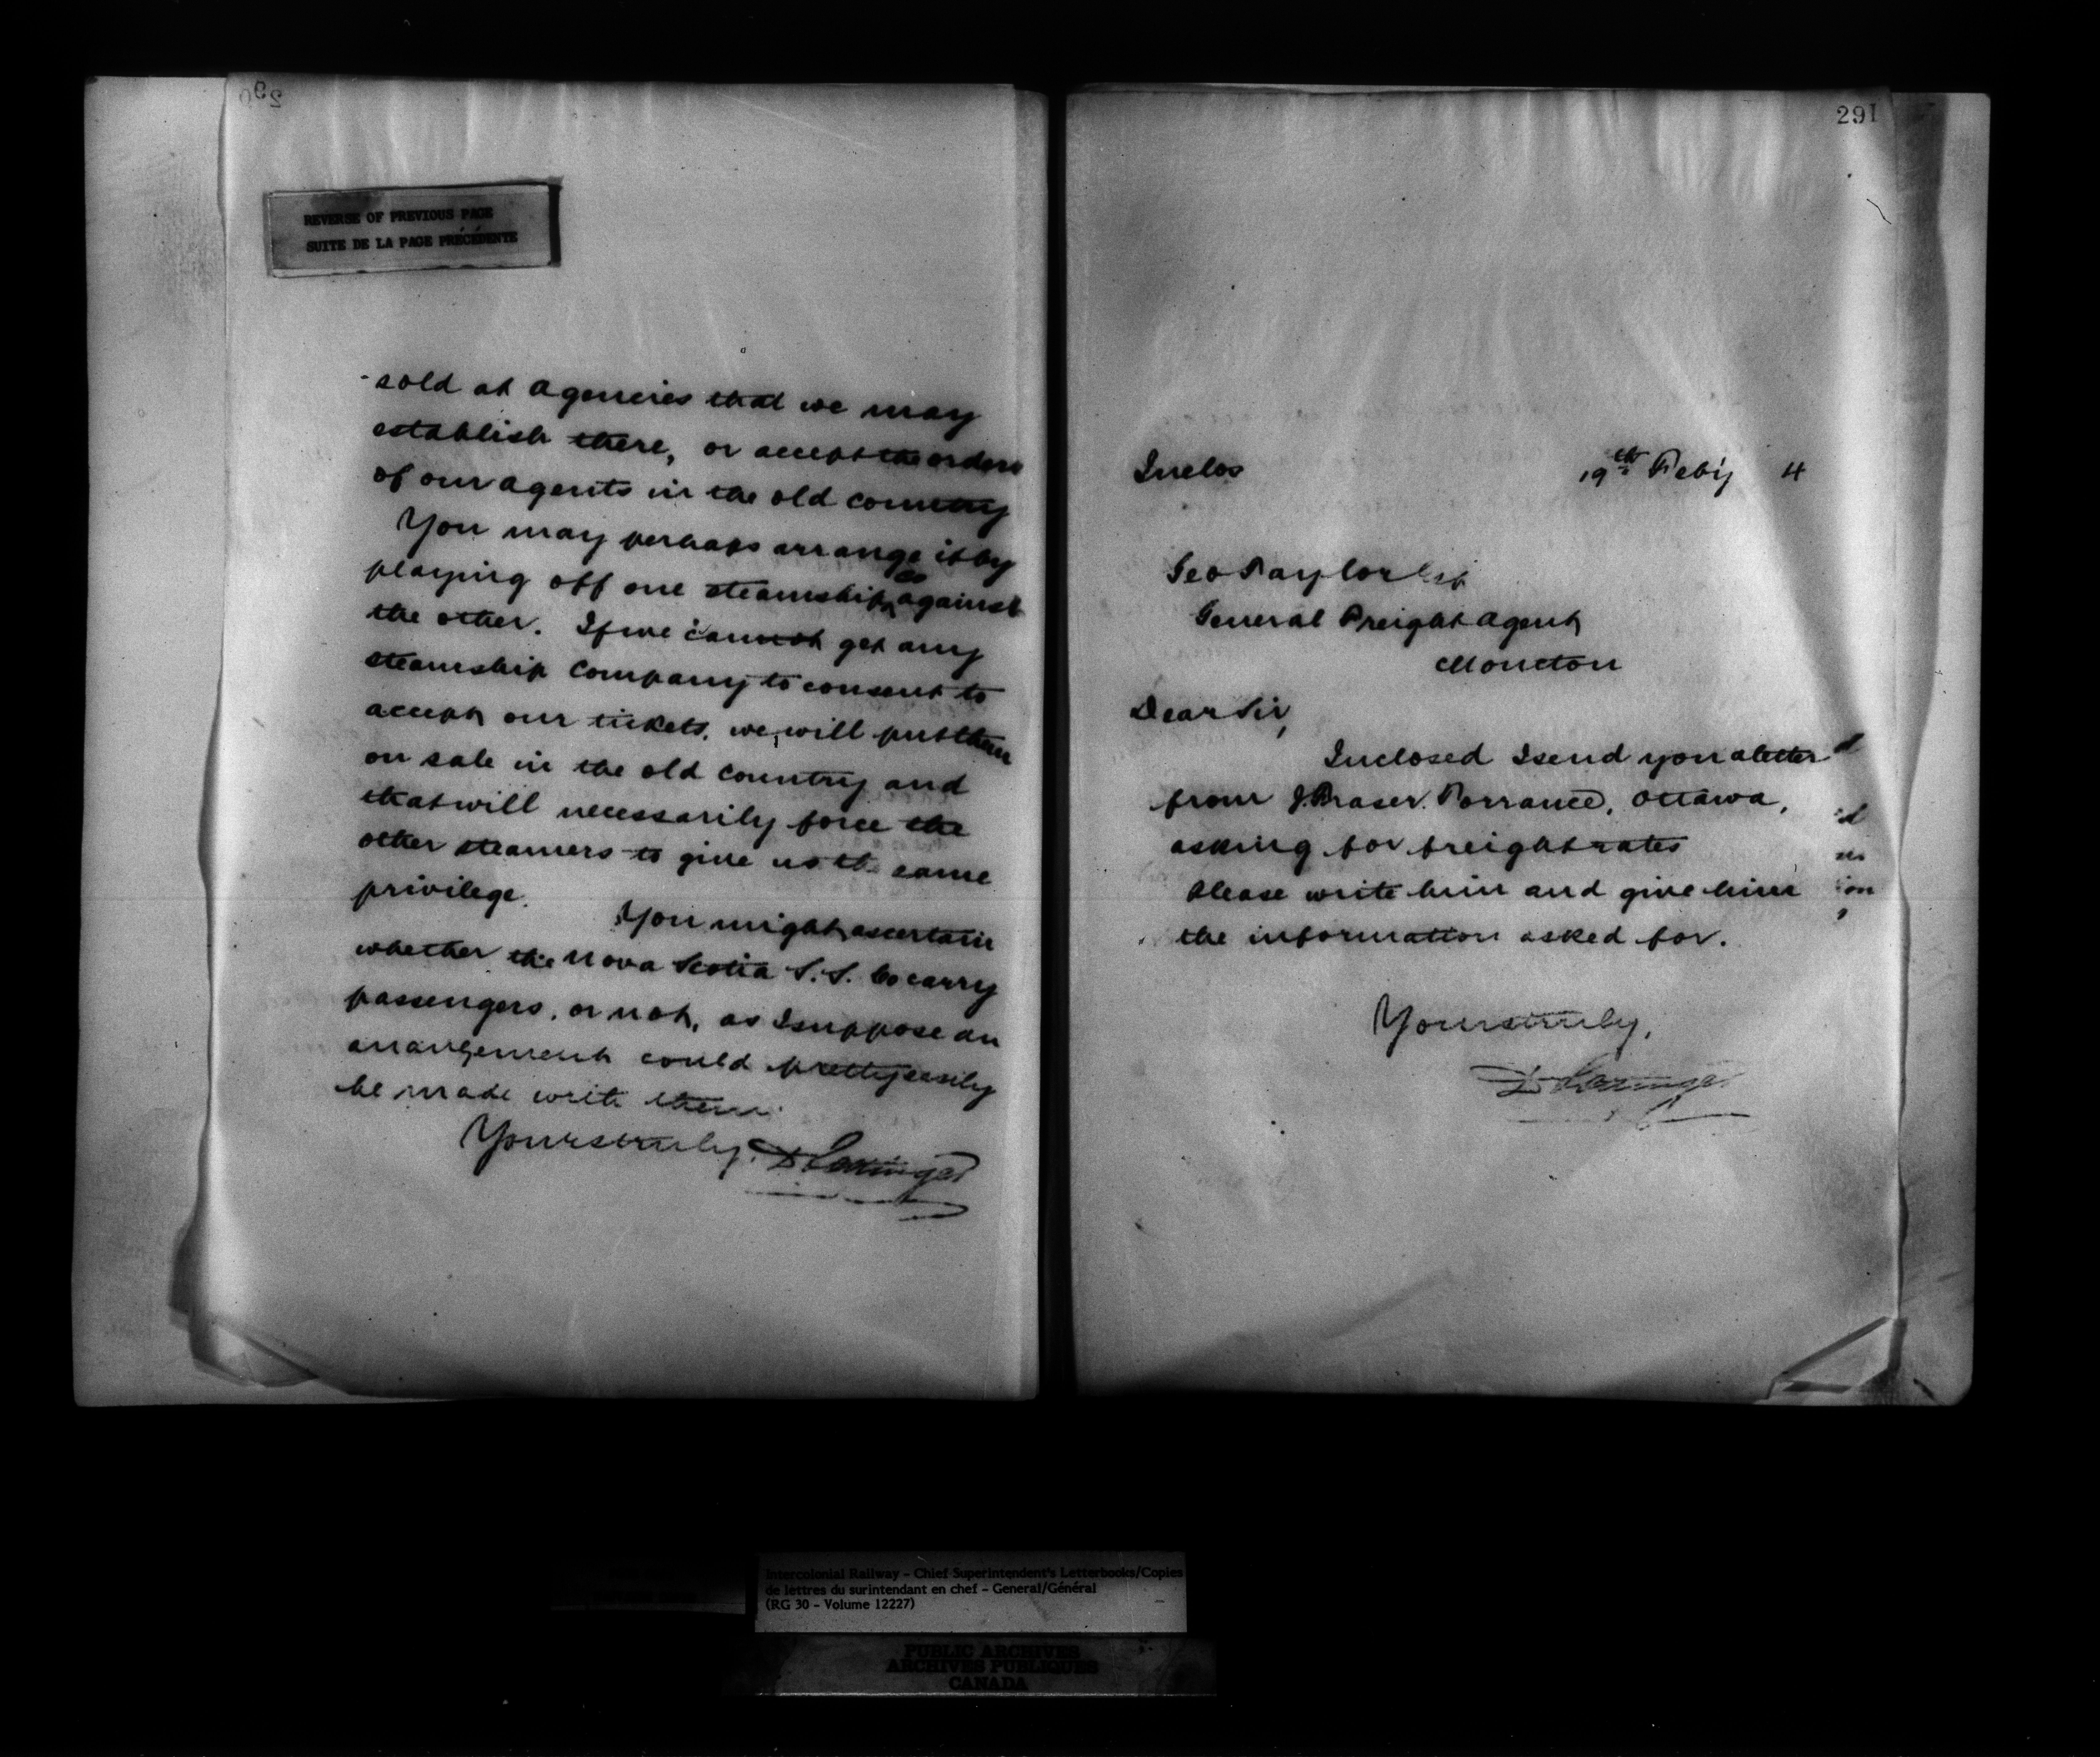 290
REVERSE OF PREVIOUS PAGE
SUITE DE LA PAGE PRÉCÉDENTE
sold at agencies that we may
establish there, or accept the orders
of our agents in the old country
You may perhaps arrange it by
playing off one steamship Co against
the other. If we cannot get any
steamship Company to consent to
accept our tickets, we will put them
on sale in the old country and
that will necessarily force the
other steamers to give us the same
privilege.
You might ascertain
whether the Nova Scotia S.S. Co carry
passengers, or not, as I suppose an
arrangement could pretty easily
be made with them.
Yours truly, D Pottinger
291
Inclos
19th Feby 4
Geo Taylor Esq
General Freight Agent
Moncton
Dear Sir,
Inclosed I send you a letter
from J. Fraser. Torrance, Ottawa,
asking for freight rates
Please write him and give him
the information asked for.
Yours truly,
D Pottinger
Intercolonial Railway - Chief Superintendent's Letterbooks/Copies
de lettres du surintendant en chef - General/Général
(RG 30 - Volume 12227)
PUBLIC ARCHIVES
ARCHIVES PUBLIQUES
CANADA